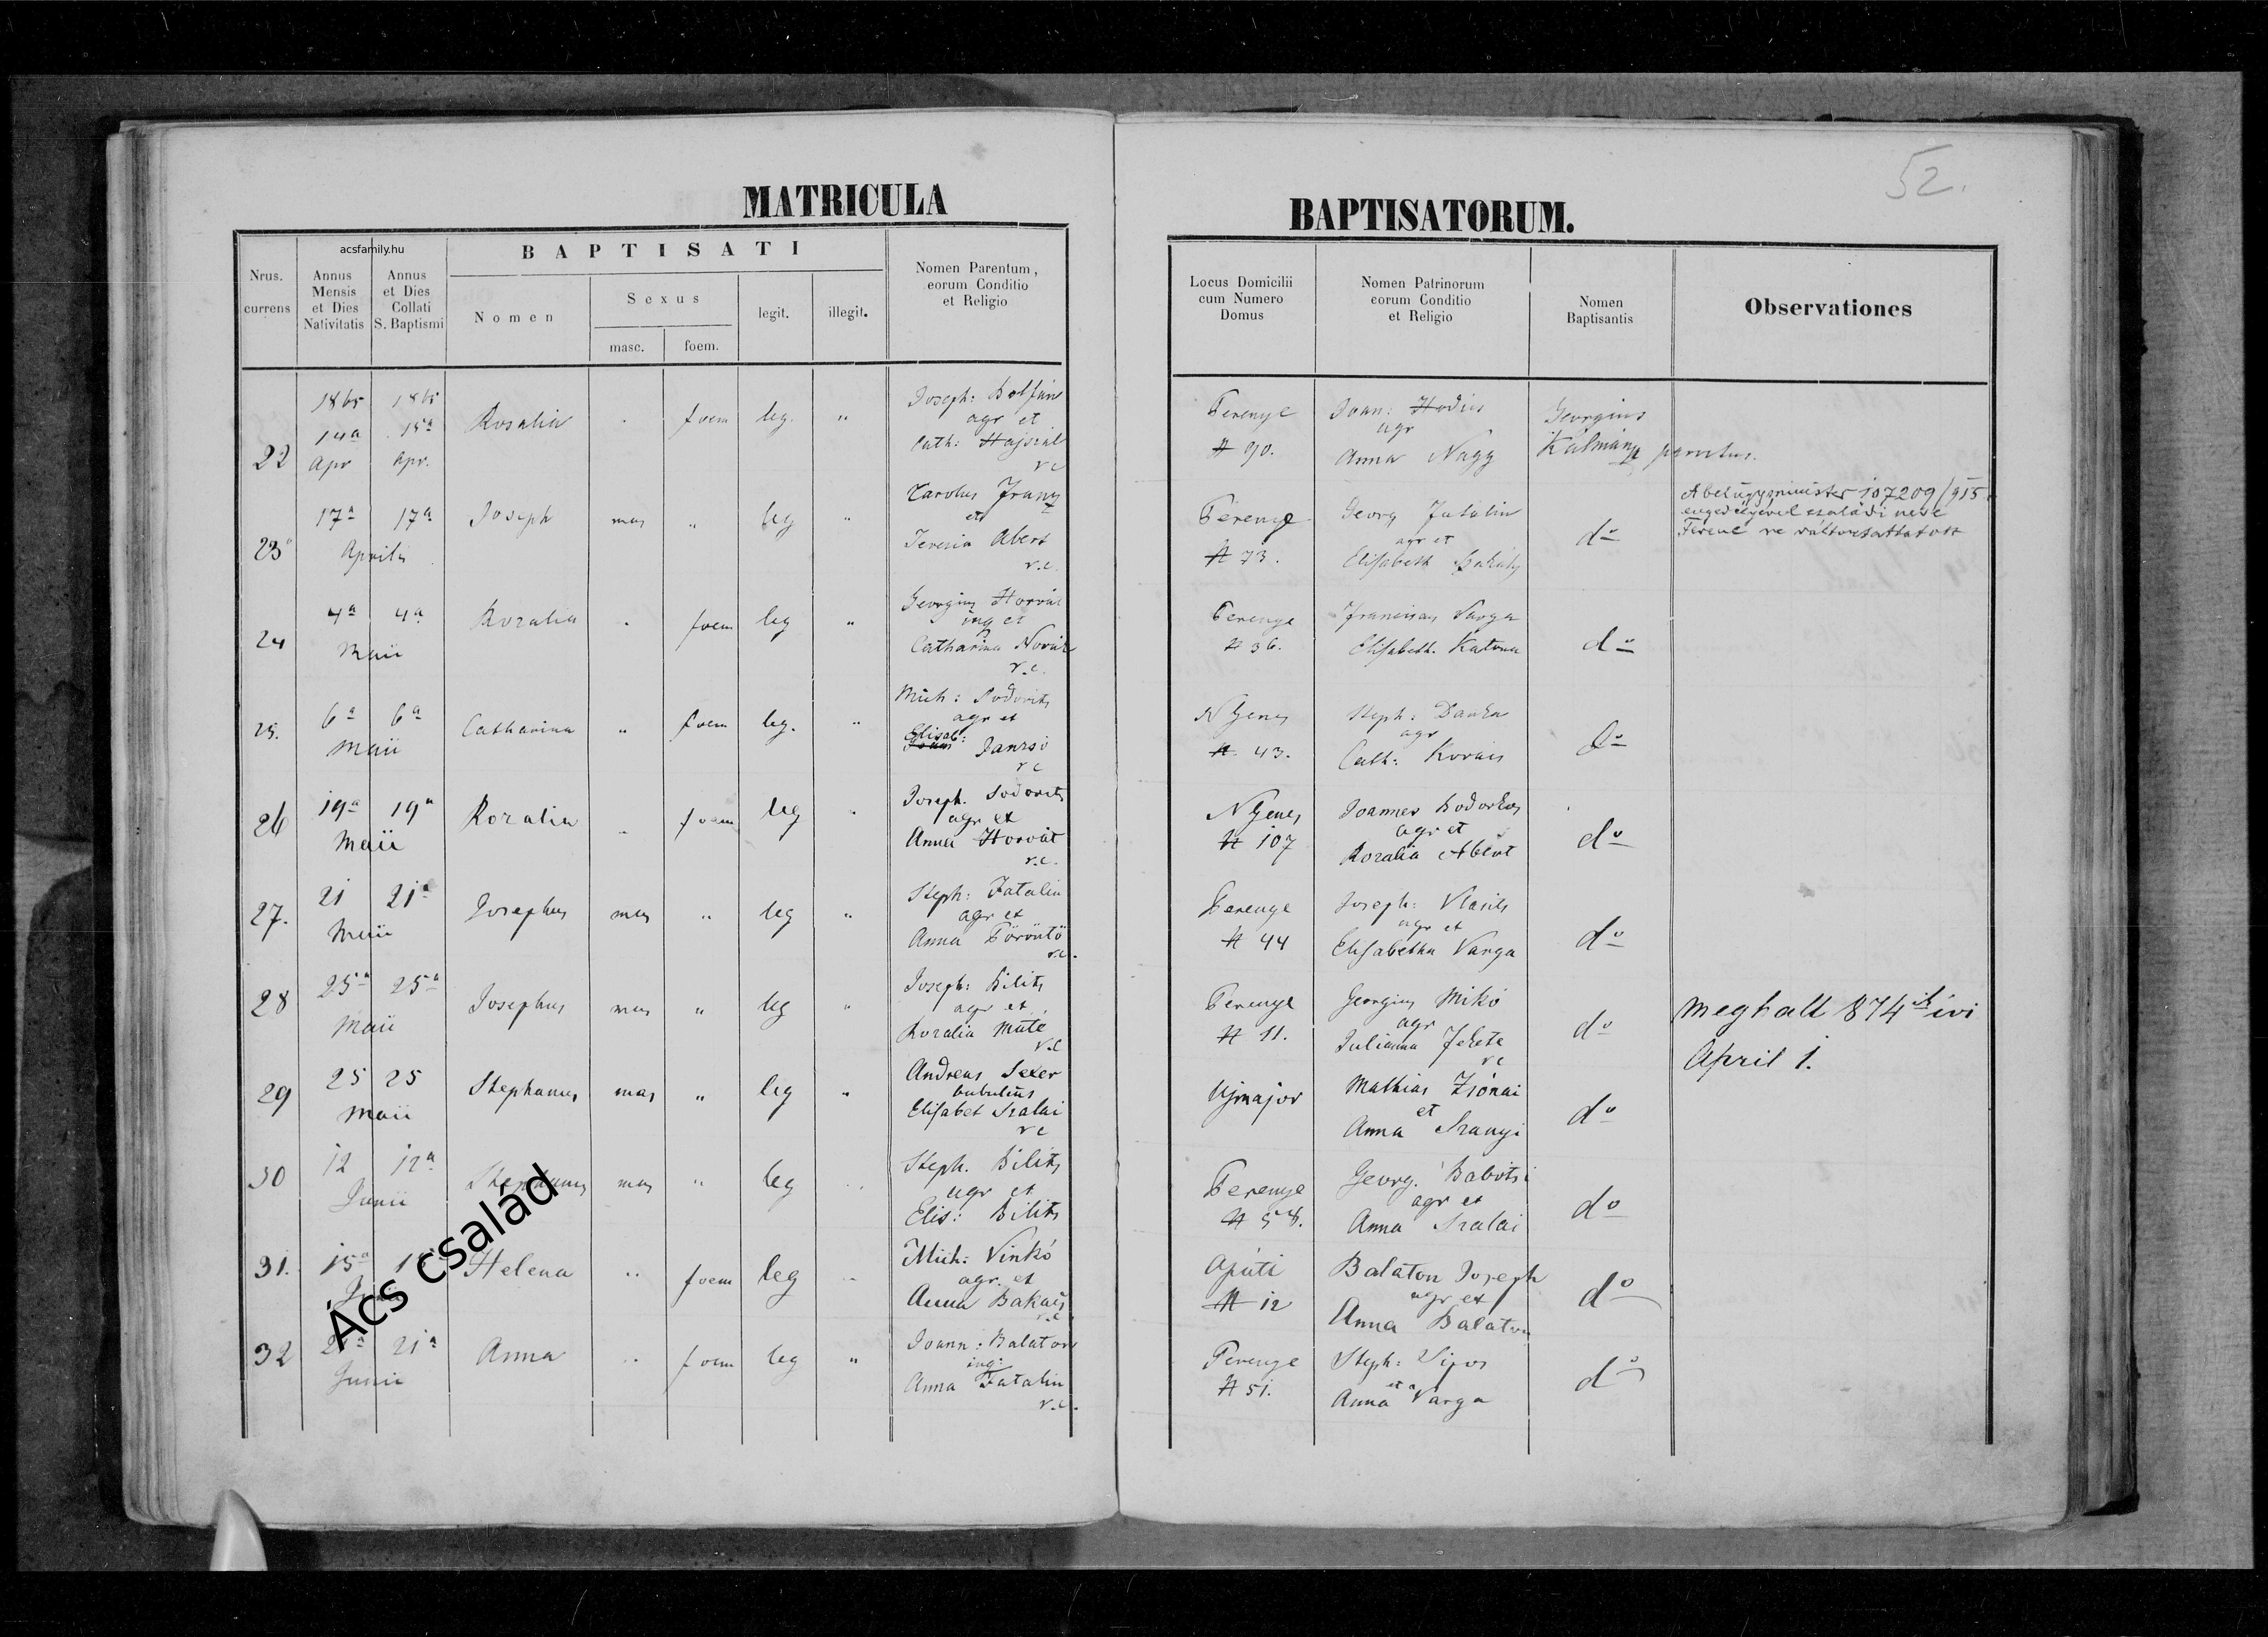 52.
MATRICULA
BAPTISATORUM.
acsfamily.hu
Nrus. currens
Annus Mensis et Dies Nativitatis
Annus et Dies Collati S. Baptismi
BAPTISATI
Nomen
Sexus
masc.
foem.
legit.
illegit.
Nomen Parentum, eorum Conditio et Religio
Locus Domicilii cum Numero Domus
Nomen Patrinorum eorum Conditio et Religio
Nomen Baptisantis
Observationes
22
1865 14a Apr
1865 15a Apr.
Rosalia
foem
leg.
"
Joseph:
agr et
Cath: Hajszál
r c
Terenye
N 90.
Joan: Hodics
agr
Anna Nagy
Georgius
Kálmán
23
17a 17a
Aprilis
Joseph
mas
"
leg
"
Carolus Franz
et
Teresia Abert
r.c.
Terenye
N 73.
Georg Fatalin
agr et
Elisabeth
do
A belügyminister 107209/915
engedélyével családi neve
Ferenc re változtattatott
24
4a 4a
Maii
Rozalia
foem
leg
"
Georgius Horvát
inq et
Catharina Novák
r.c.
Terenye
N 36.
Franciscus Varga
Elisabeth. Katona
do
25.
6a 6a
Maii
Catharina
"
foem
leg.
"
Mich: Sodorits
agr et
Elisab:
Jancsó
r c
N Genes
N. 43.
Steph: Danka
agr
Cath: Kovács
do
26
19a 19a
Maii
Rozalia
foem
leg
Joseph. Sodorits
agr et
Anna Horvát
r.c.
N Genes
N 107
Joannes Bodorkos
agr et
Rozalia Abért
do
27.
21 21a
Maii
Josephus
mas
"
leg
"
Steph: Fatalin
agr et
Anna Töröntö
r.c.
Terenye
N 44
Joseph: Vlasits
agr et
Elisabetha Varga
do
28
25a 25a
Maii
Josephus
mas
"
leg
"
Joseph: Bilits
agr et
Rozalia Máté
r.c
Terenye
N 11.
Georgius Mikó
agr
Julianna Fekete
r c
do
meghalt 874ik évi
April 1.
29
25 25
Maii
Stephanus
mas
"
leg
"
Andreas Sexer
bubulcus
Elisabet Szalai
r c
Ujmajor
Mathias Zsónai
et
Anna Szanyi
do
30
12 12a
Junii
Stephanus
mas
"
leg
Steph. Bilits
agr et
Elis: Bilits
Terenye
N 58.
Georg. Babotsi
agr et
Anna Szalai
do
31.
15a
Helena
"
foem
leg
Mich: Vinkó
agr et
Anna Bakacs
r.c.
Apáti
N 12
Balaton Joseph
agr et
Anna Balaton
do
32
21a 21a
Junii
Anna
"
foem
leg
"
Joann: Balaton
inq:
Anna Fatalin
r.c.
Terenye
N 51.
Steph: Sipos
et
Anna Varga
do
Ács család